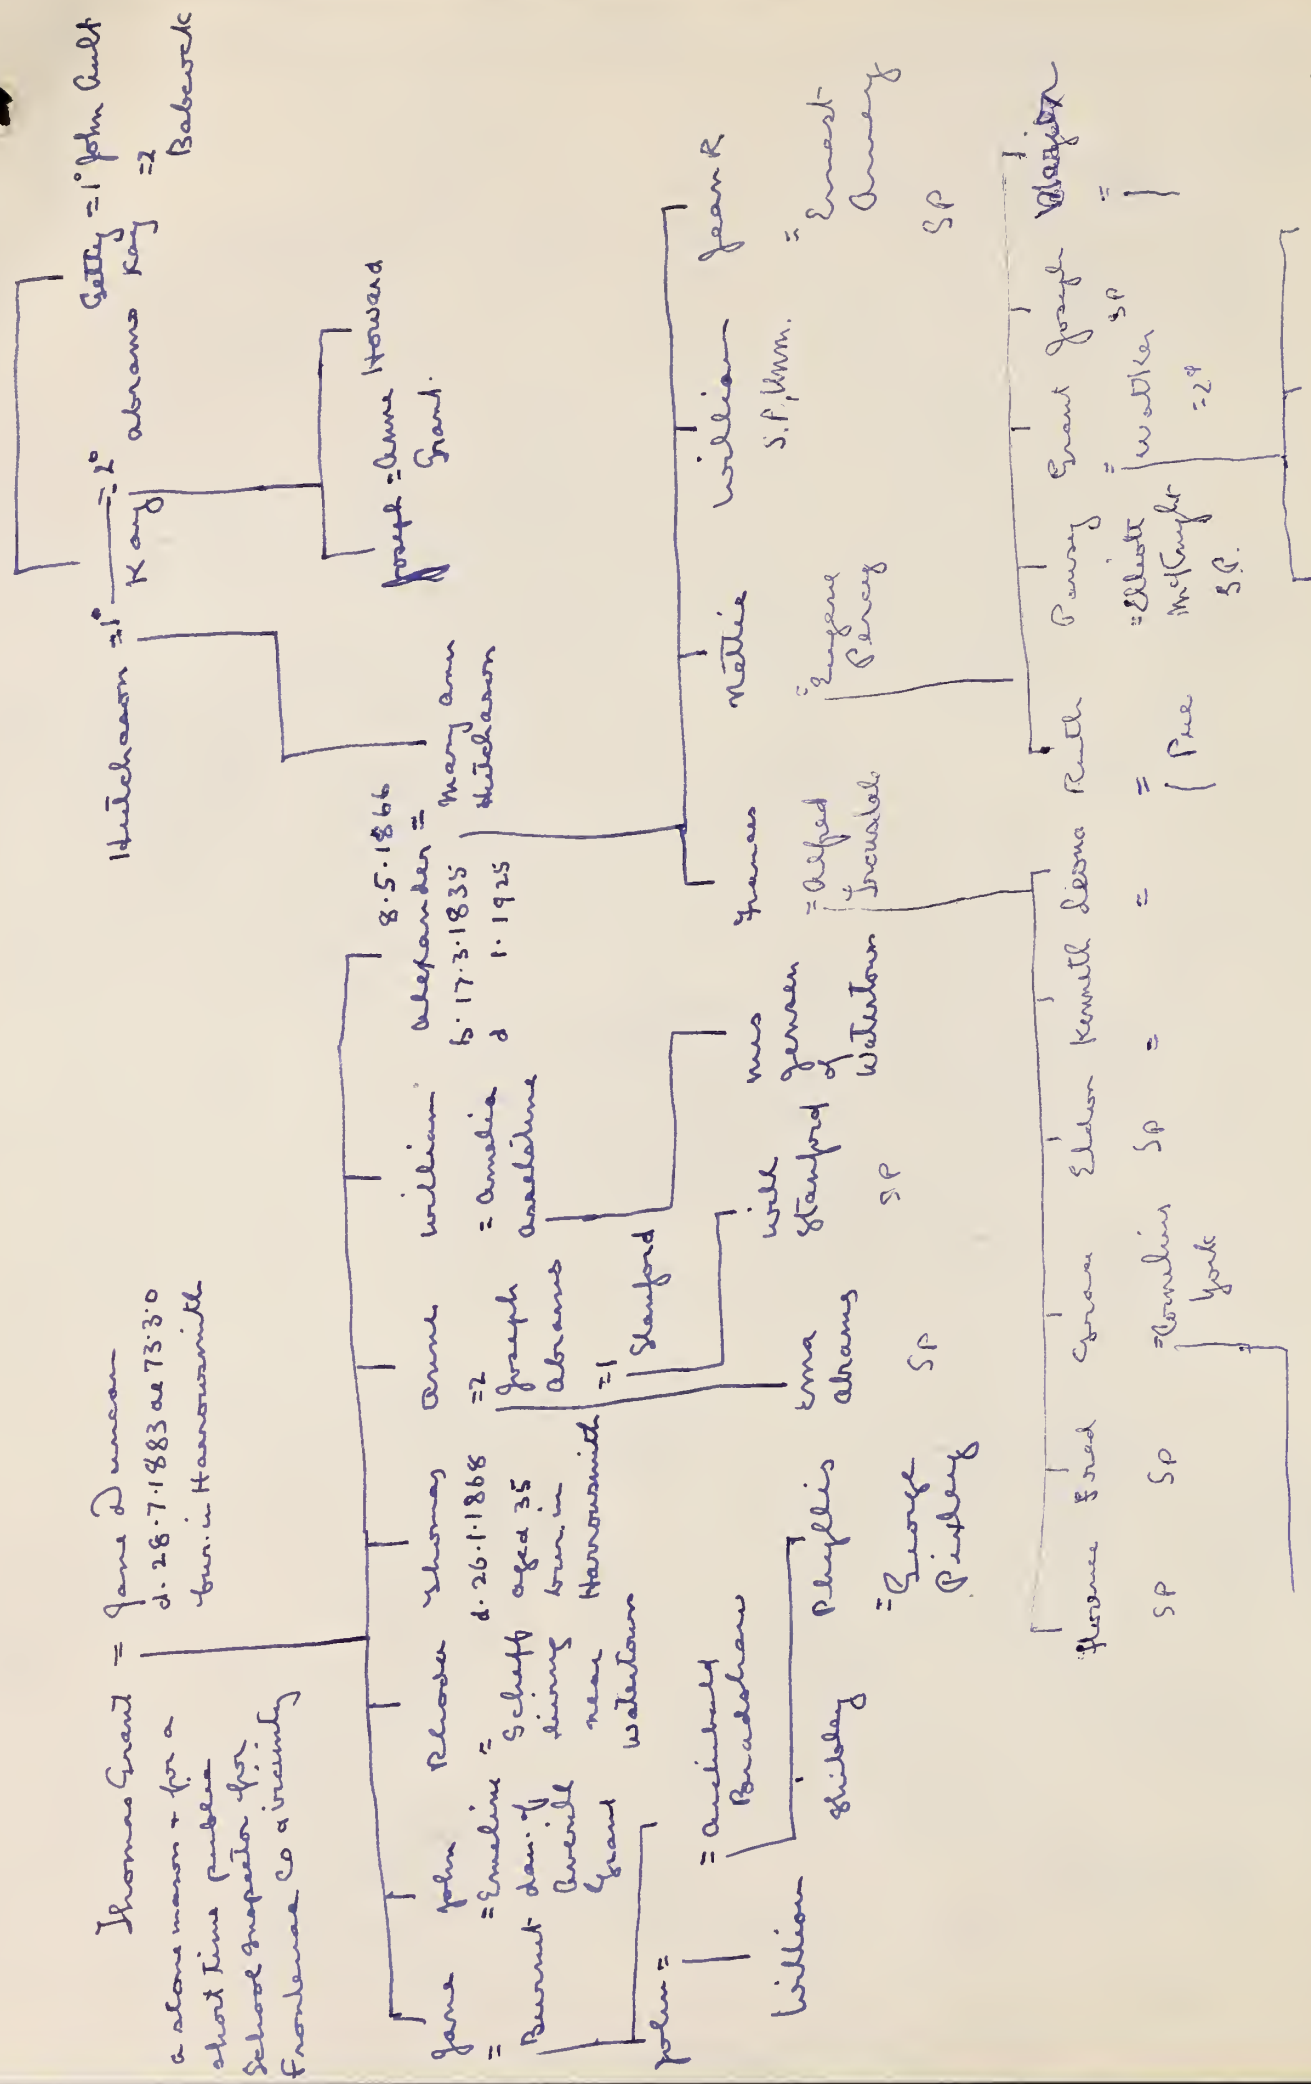 Thomas Grant = Jane Duncan
a stone mason + for a
short time public
School Inspector for
Frontenac Co & vicinity
d. 28.7.1883 ae 73.3.0
bur. in Harrowsmith
Hutchason =1°
=2°
Kay
Getty =1° John Ault
abrams Kay =2
Babcock
Joseph = Anne Howard
Grant.
Jane
=
Burnet
John
= Emeline
dau. of
Averill
Grant
Rhoda
=
Scheff
living
near
Watertown
Thomas
d. 26.1.1868
aged 35
bur. in
Harrowsmith
Anne
=2
Joseph
Abrams
=1
Stanford
William
= Amelia
Asselstine
8.5.1866
Alexander =
b. 17.3.1835
d 1.1925
Mary Ann
Hutchason
John =
= Archibald
Bradshaw
William
Shibley
Phyllis
= George
Pixley
Ema
Abrams
SP
Will
Stanford
SP
Mrs
Jensen
of
Watertown
Frances
= Alfred
Trousdale
Nettie
= Eugene
Percy
William
S.P., Unm.
Jean R
= Ernest
Amey
SP
Florence
SP
Fred
SP
Grace
= Cornelius
York
Eldon
SP
Kenneth
=
Leona
=
Ruth
=
Pue
Pansy
= Elliott
McKnight
S.P.
Grant
=
Walker
=2°
Joseph
SP
=